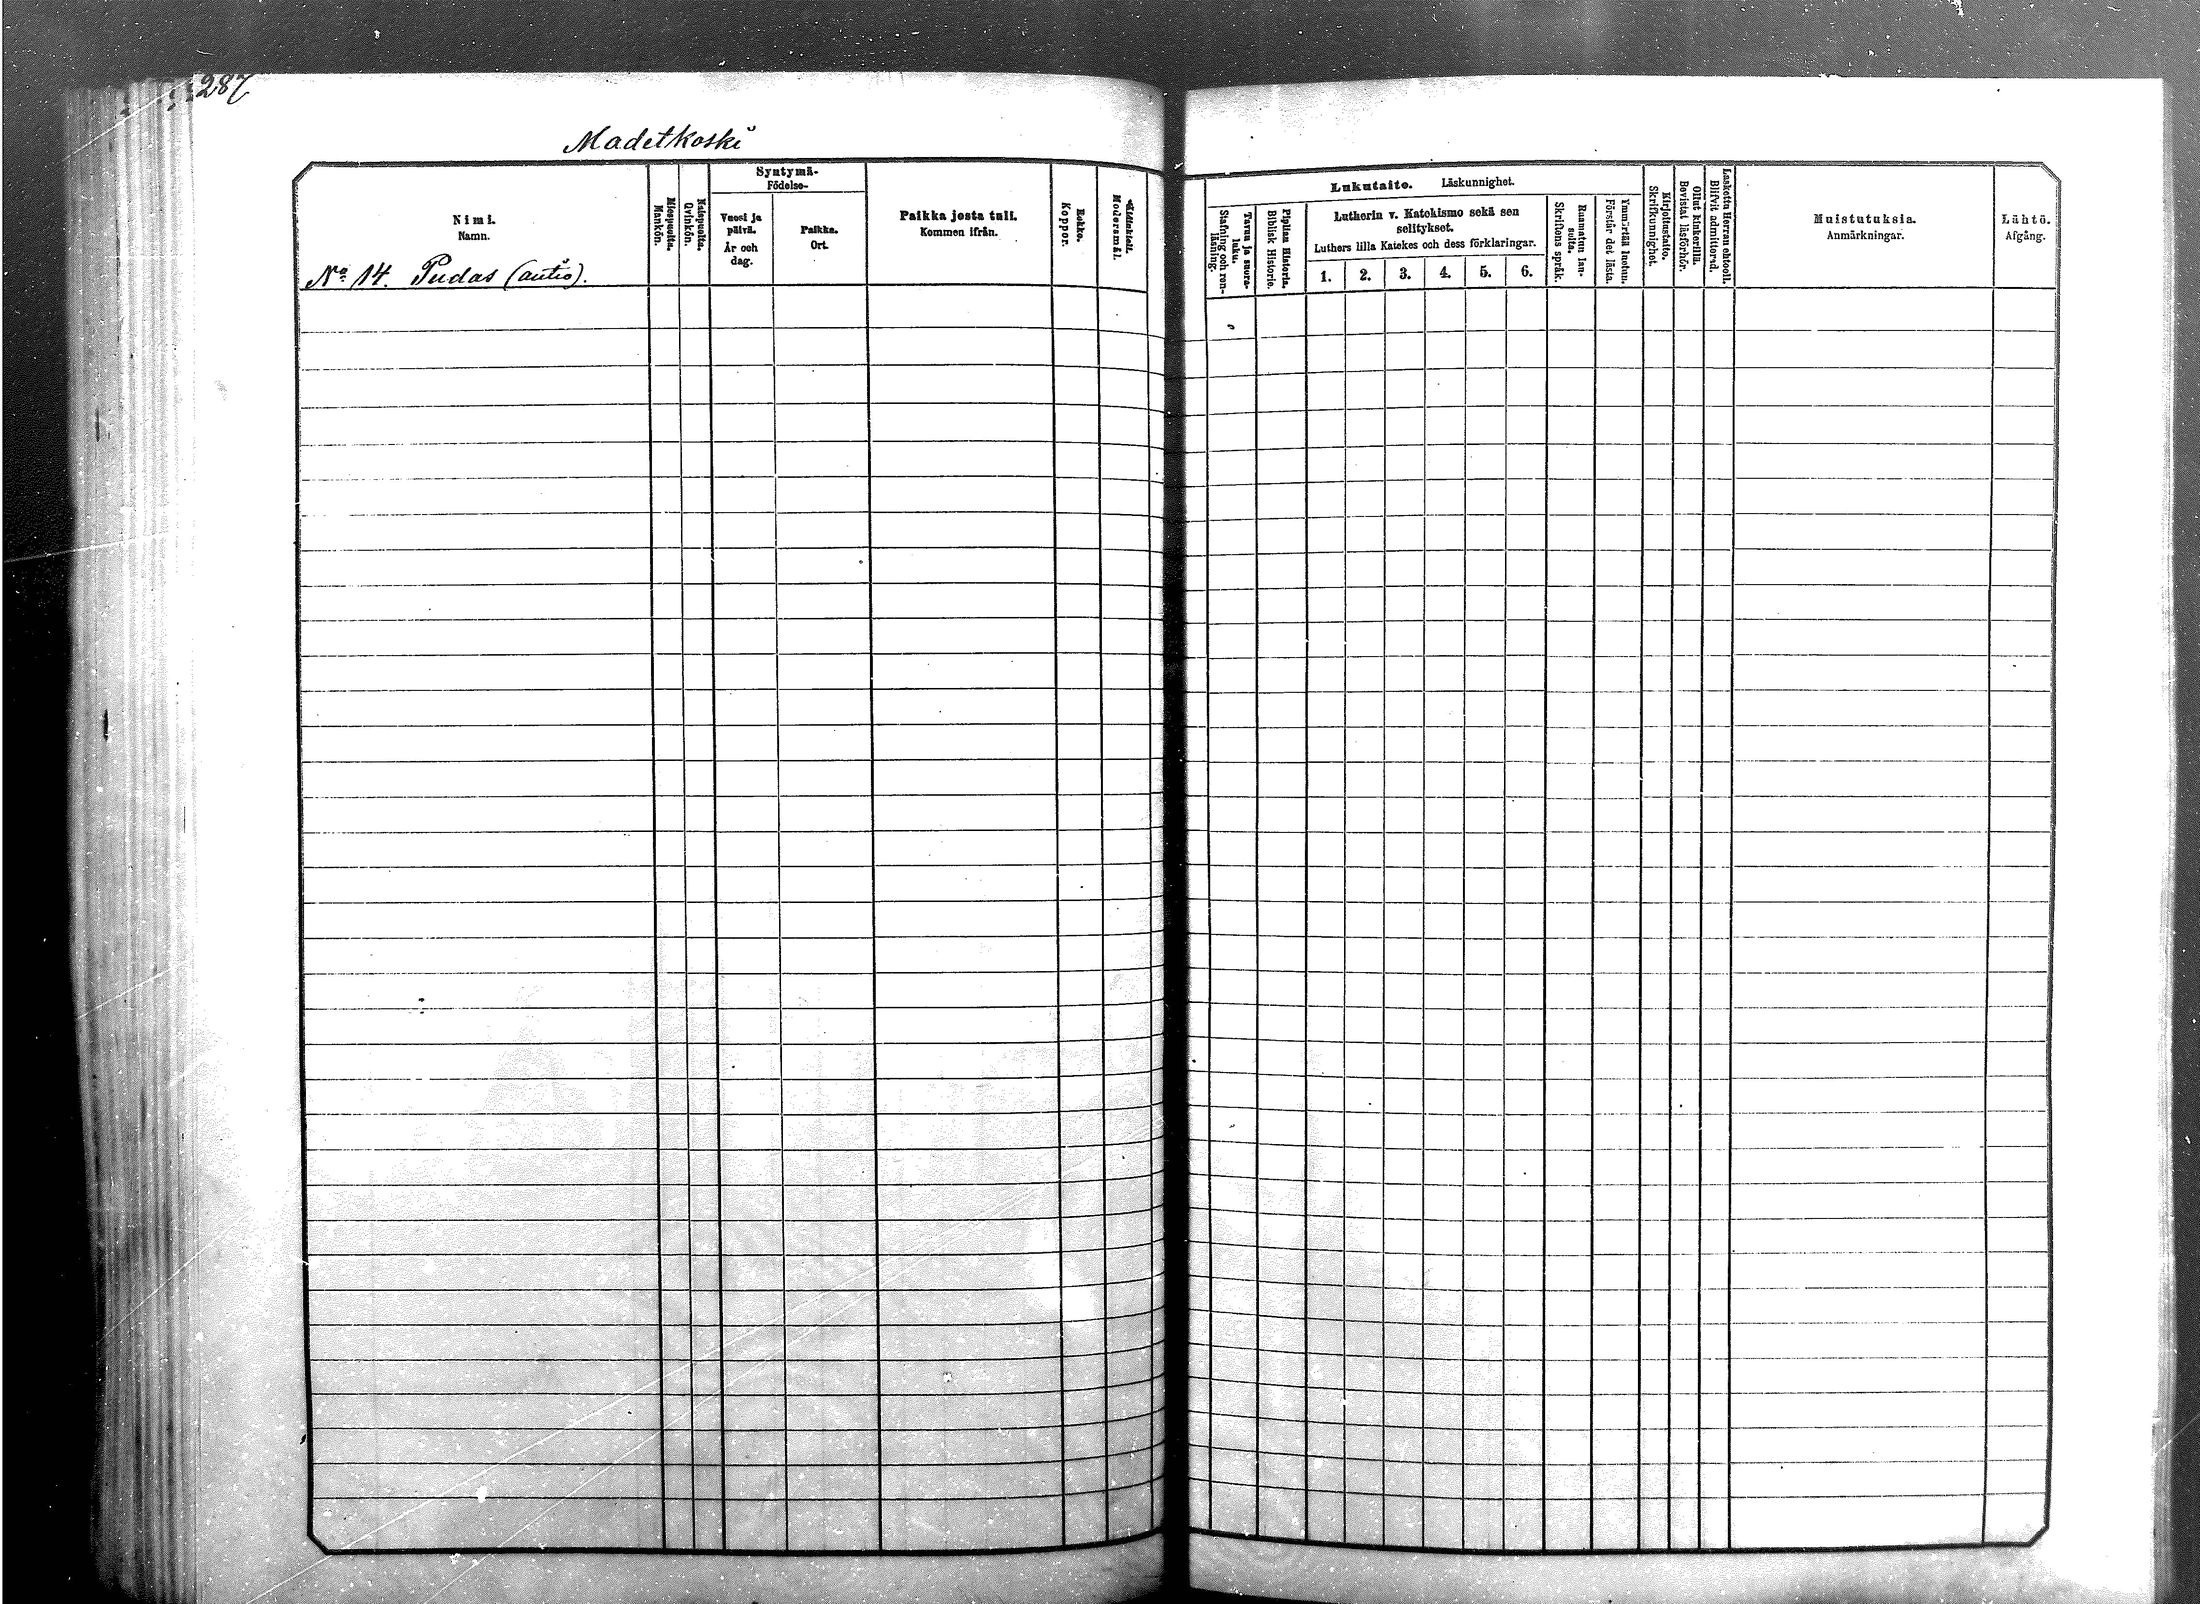 287
Madetkoski
Nimi.
Namn.
No 14. Pudas (autio).
Miespuolia.
Mankön.
Naispuolia.
Qvinkön.
Syntymä-
Födelse-
Vuosi ja
päivä.
År och
dag.
Paikka.
Ort.
Paikka josta tuli.
Kommen ifrån.
Rokko.
Koppor.
Modersmål.
Lukutaito. Läskunnighet.
Tavuu ja suora-
luku.
Stafning och ren-
läsning.
Piplian Historia.
Biblisk Historie.
Lutherin v. Katekismo sekä sen
selitykset.
Luthers lilla Katekes och dess förklaringar.
1. 2. 3. 4. 5. 6.
Raamatun lau-
seita.
Skriftens språk.
Ymmärtää luetun.
Förstår det lästa.
Kirjoitustaito.
Skrifkunnighet.
Ollut kinkerillä.
Bevistat läsförhör.
Laskettu Herran ehtooll.
Blifvit admitterad.
Muistutuksia.
Anmärkningar.
Lähtö.
Afgång.